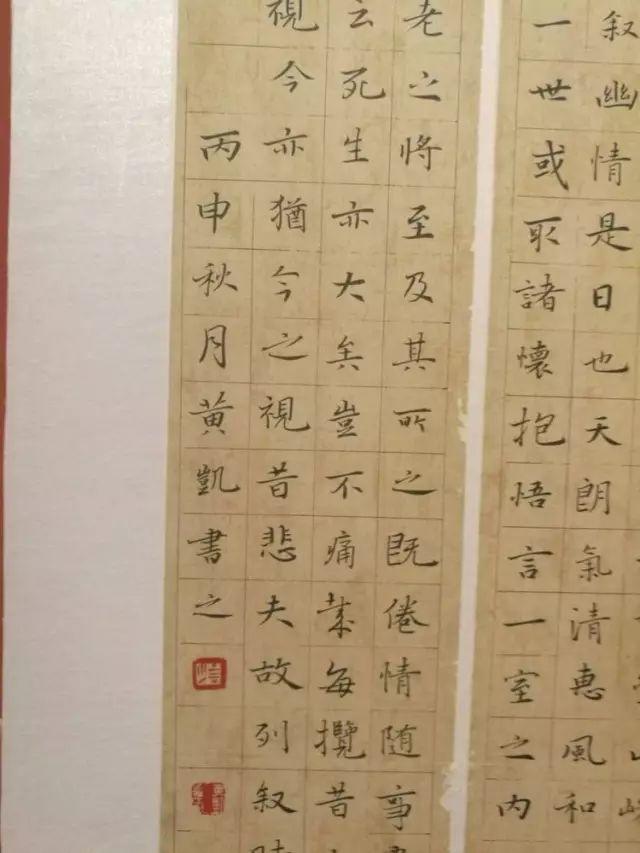 叙幽情是日也天朗氣清惠風和
一世或取諸懷抱悟言一室之内
老之將至及其所之既倦情随事
云死生亦大矣豈不痛哉每攬昔
視今亦猶今之視昔悲夫故列叙
丙申秋月黄凱書之